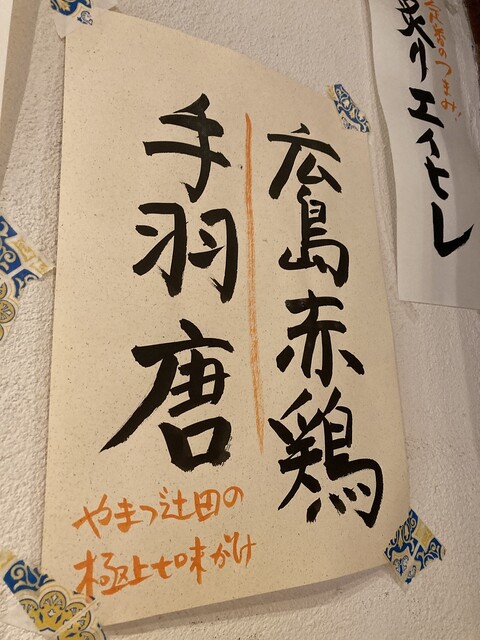 広島赤鶏
手羽唐
やまつ辻田の
極上七味がけ
炙りエイヒレ